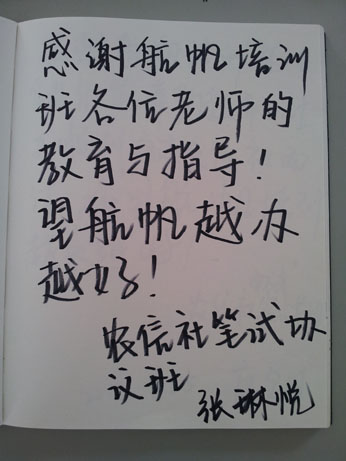 感谢航帆培训
班各位老师的
教育与指导!
望航帆越办
越好!
农信社笔试协
议班
张琳悦